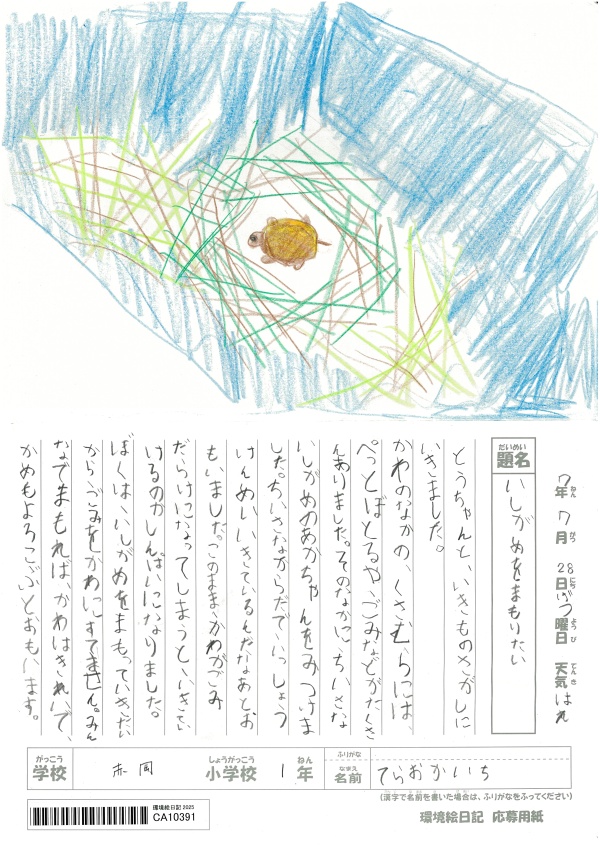 7年 7月 28日 げつ曜日 天気 はれ
ねん がつ にち ようび てんき
だいめい
題名 いしがめをまもりたい
とうちゃんと、いきものさがしに
いきました。
かわのなかの、くさむらには、
ぺっとぼとるや、ごみなどがたくさ
んありました。そのなかに、ちいさな
いしがめのあかちゃんをみつけま
した。ちいさなからだで、いっしょう
けんめいいきているんだなあとお
もいました。このまま、かわがごみ
だらけになってしまうと、いきてい
けるのかしんぱいになりました。
ぼくは、いしがめをまもっていきたい
から、ごみをかわにすてません。みん
なでまもれば、かわはきれいで、
かめもよろこぶとおもいます。
がっこう しょうがっこう ねん ふりがな
学校 赤岡 小学校 1年 なまえ 名前 てらおかいち
(漢字で名前を書いた場合は、ふりがなをふってください)
環境絵日記 応募用紙
環境絵日記 2025
CA10391